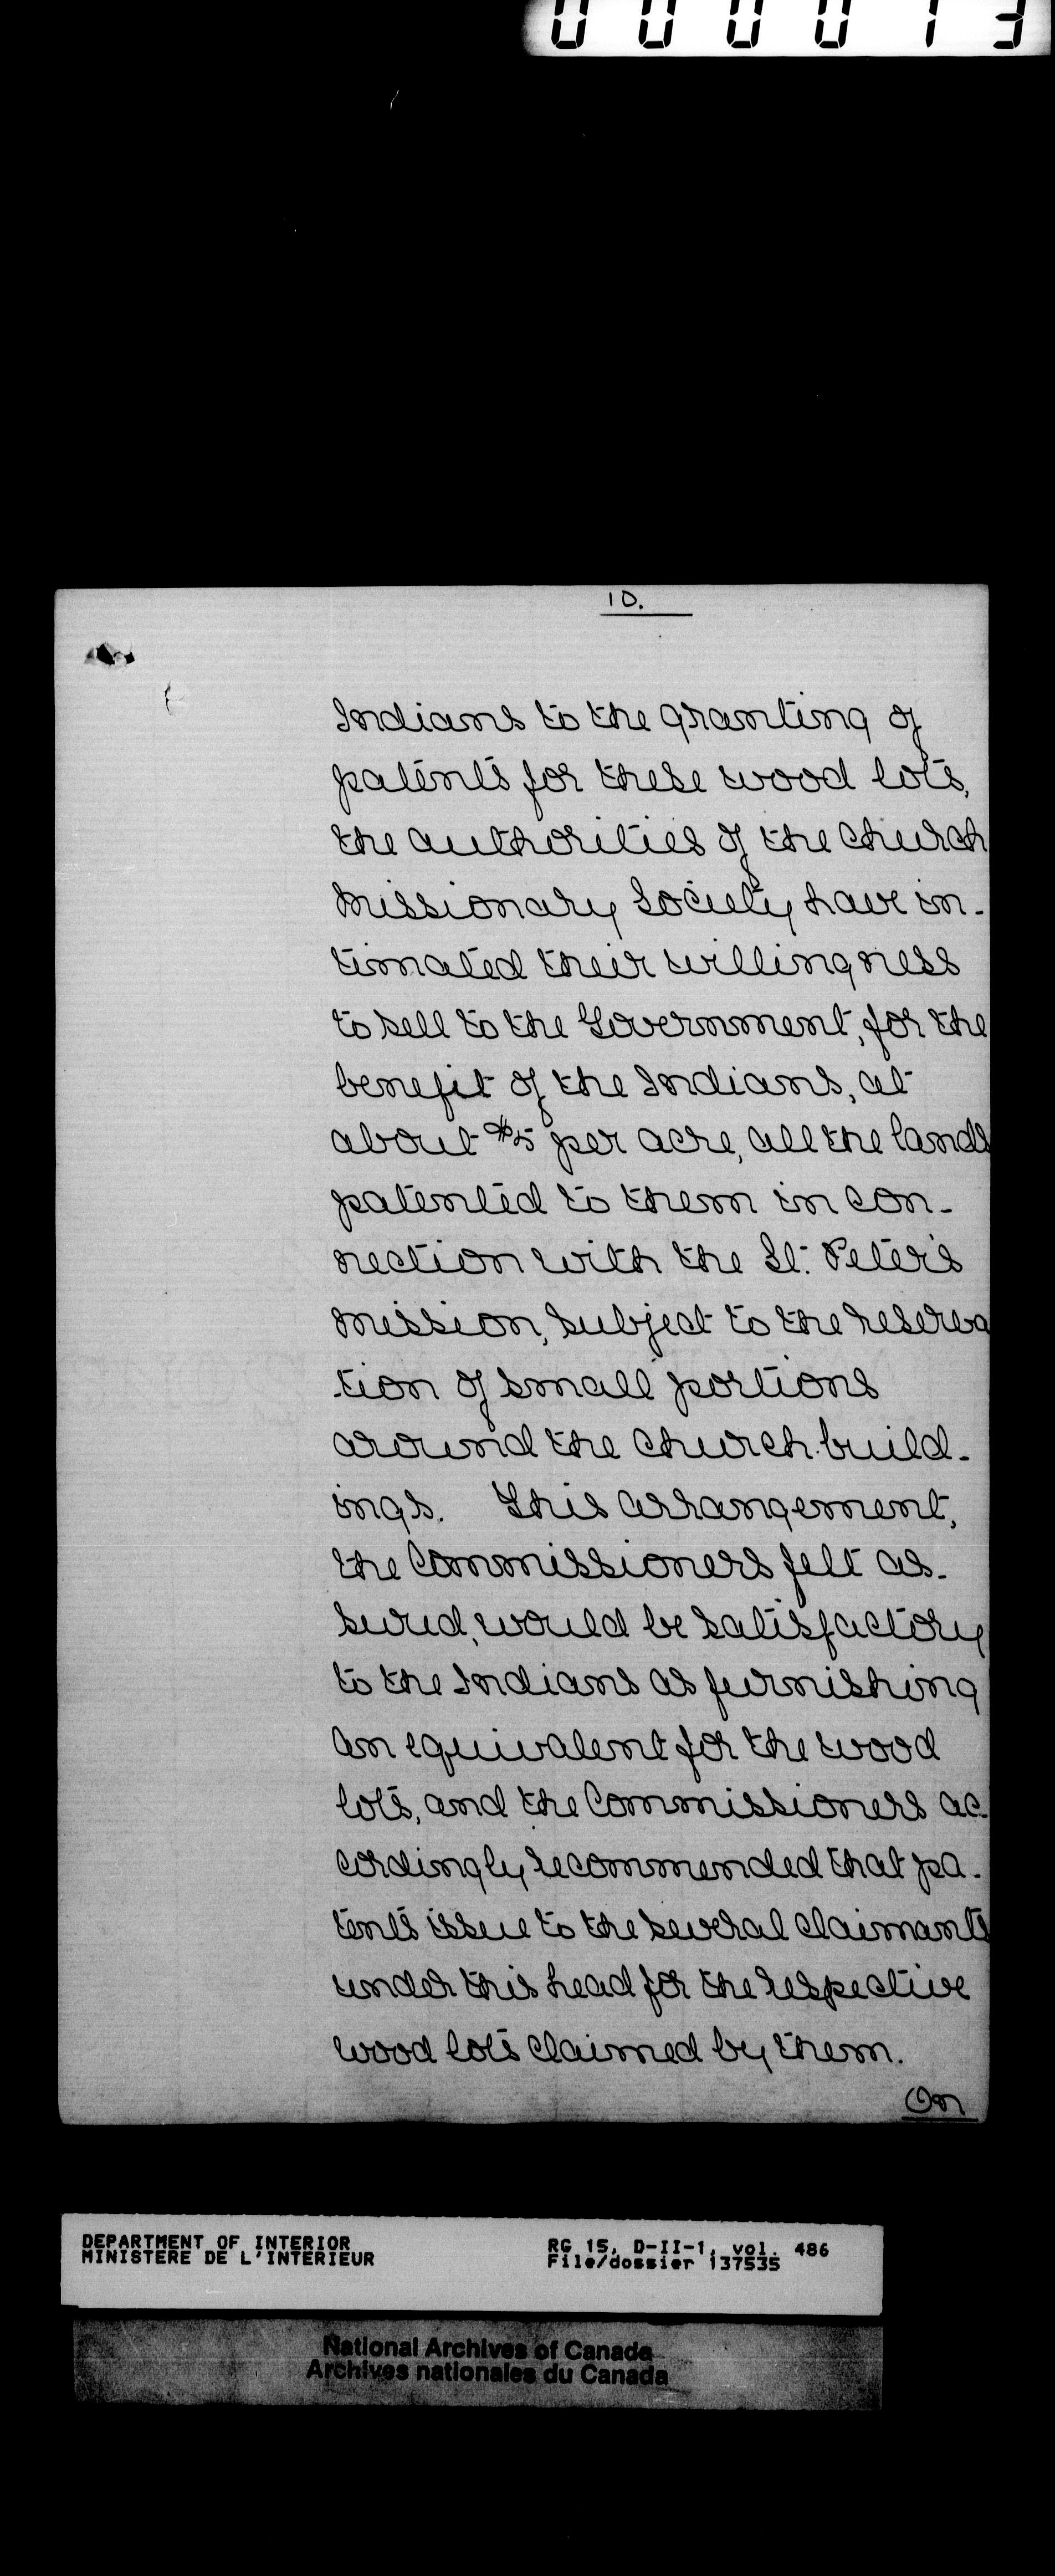 000013
10.
Indians to the granting of
patents for these wood lots,
the authorities of the Church
Missionary Society have in-
timated their willingness
to sell to the Government, for the
benefit of the Indians, at
about $5 per acre, all the lands
patented to them in con-
nection with the St. Peter's
Mission, subject to the reserva
-tion of small portions
around the Church build-
ings. This arrangement,
the Commissioners felt as-
sured, would be satisfactory
to the Indians as furnishing
an equivalent for the wood
lots, and the Commissioners ac-
cordingly recommended that pa-
tents issue to the several claimants
under this head for the respective
wood lots claimed by them.
On
DEPARTMENT OF INTERIOR
MINISTERE DE L'INTERIEUR
RG 15, D-II-1, vol. 486
File/dossier 137535
National Archives of Canada
Archives nationales du Canada